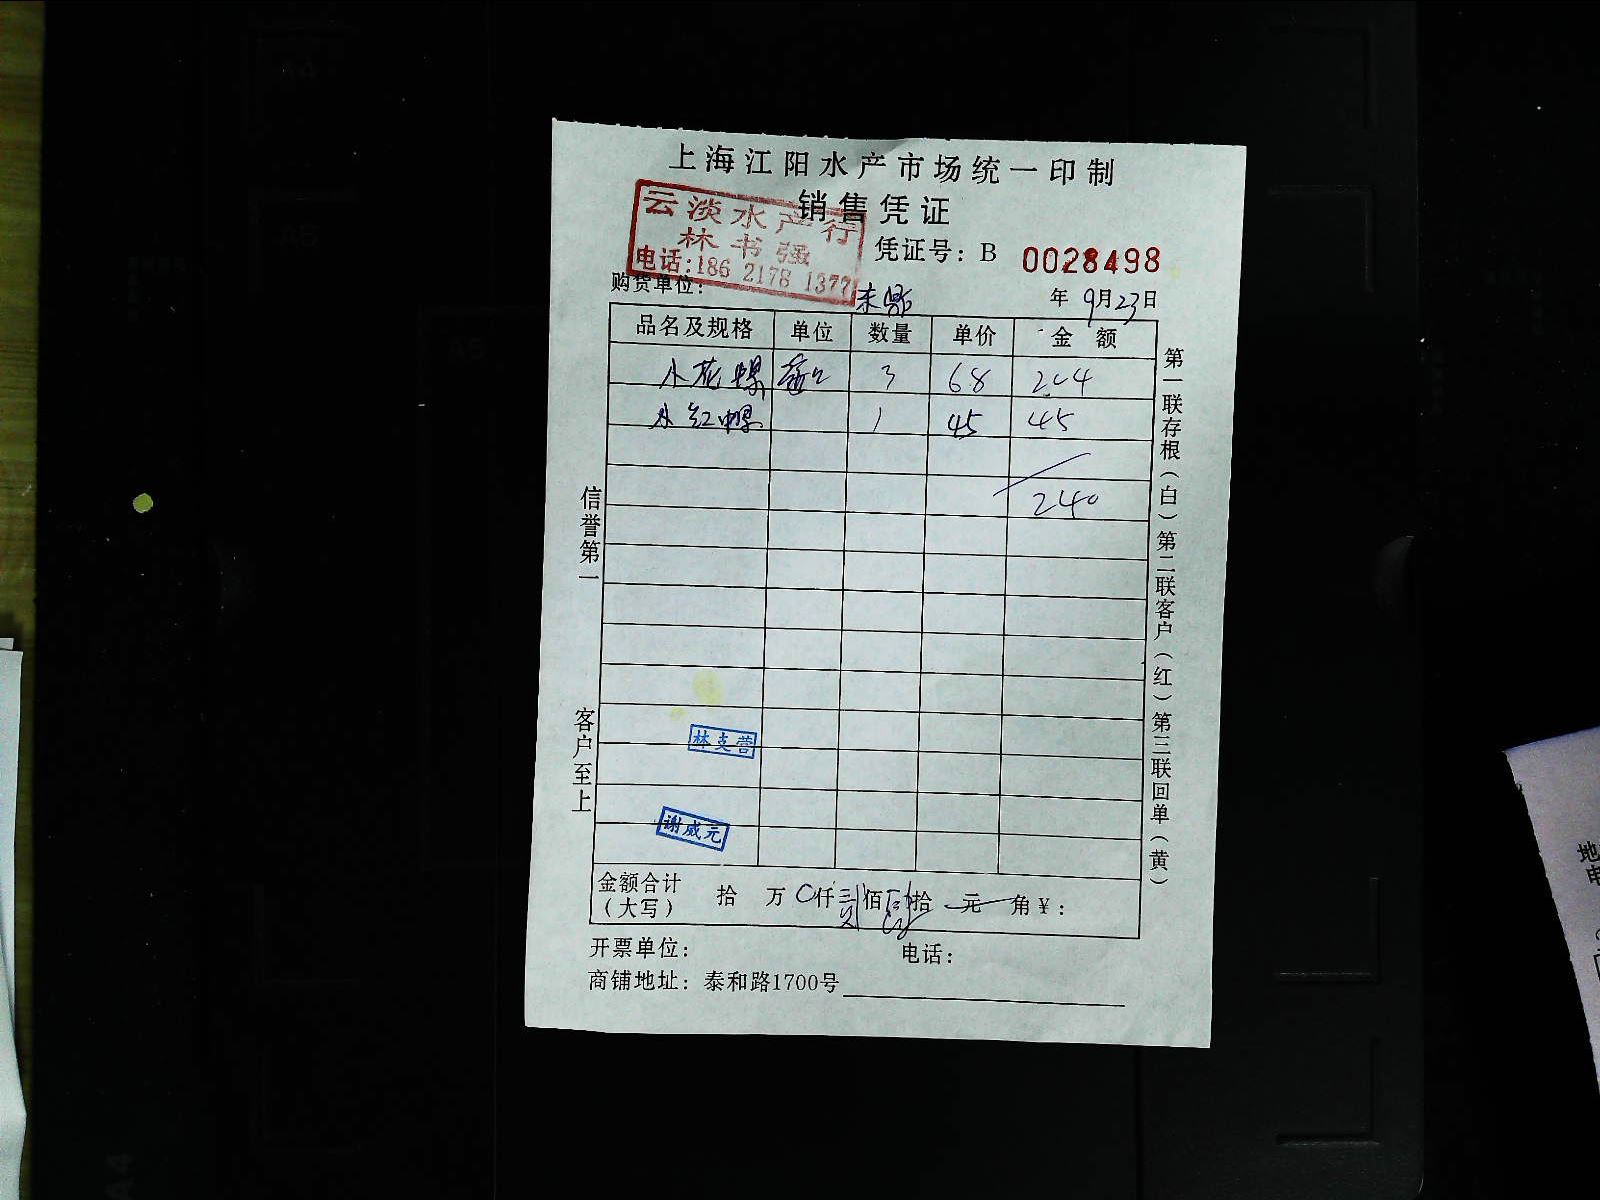 上海江阳水产市场统一印制
销售凭证
云淡水产行
林书强
电话:186 2178 1377
凭证号: B 0028498
购货单位:
年 9月23日
品名及规格 单位 数量 单价 金额
小花螺 3 68 204
小红螺 1 45 45
240
信誉第一
客户至上
第一联存根(白)第二联客户(红)第三联回单(黄)
林支营
谢威元
金额合计(大写) 拾 万 0仟 佰 拾 元 角¥:
开票单位: 电话:
商铺地址: 泰和路1700号
地
电